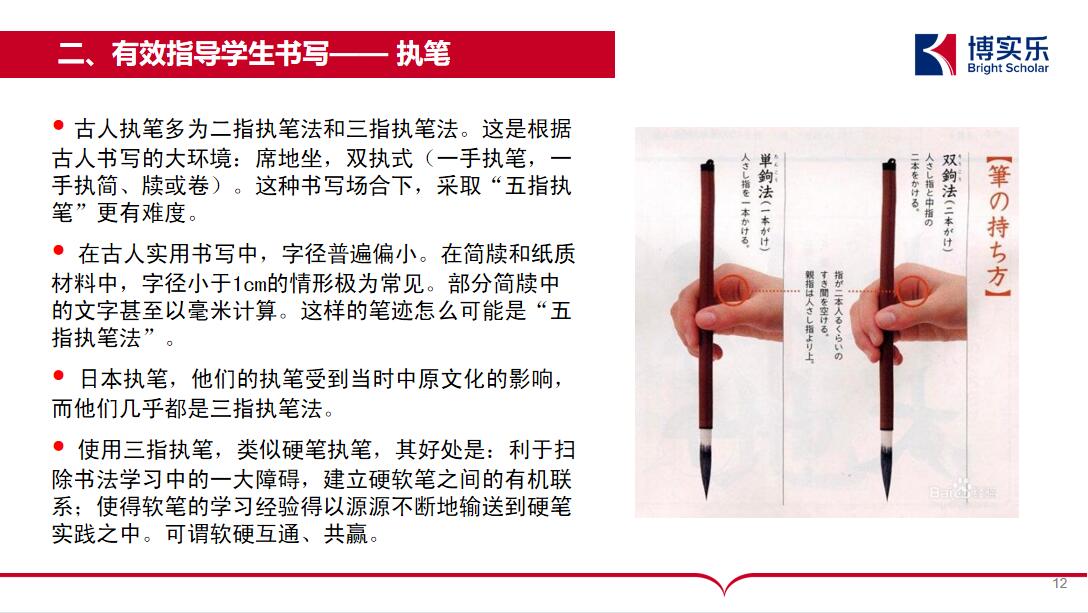 二、有效指导学生书写—— 执笔
博实乐
Bright Scholar
• 古人执笔多为二指执笔法和三指执笔法。这是根据
古人书写的大环境：席地坐，双执式（一手执笔，一
手执简、牍或卷）。这种书写场合下，采取“五指执
笔”更有难度。
• 在古人实用书写中，字径普遍偏小。在简牍和纸质
材料中，字径小于1cm的情形极为常见。部分简牍中
的文字甚至以毫米计算。这样的笔迹怎么可能是“五
指执笔法”。
• 日本执笔，他们的执笔受到当时中原文化的影响，
而他们几乎都是三指执笔法。
• 使用三指执笔，类似硬笔执笔，其好处是：利于扫
除书法学习中的一大障碍，建立硬软笔之间的有机联
系；使得软笔的学习经验得以源源不断地输送到硬笔
实践之中。可谓软硬互通、共赢。
【筆の持ち方】
双鉤法（二本がけ）
そうこう
人さし指と中指の
二本をかける。
単鉤法（一本がけ）
たんこう
人さし指を一本かける。
指が二本入るくらいの
すき間を空ける。
親指は人さし指より上。
Bai
12